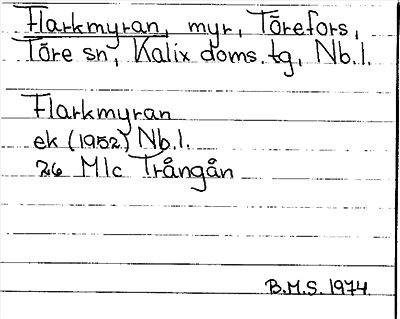 Flarkmyran, myr, Törefors,
Töre sn, Kalix doms.tg, Nb.l.
Flarkmyran
ek (1952) Nb.l.
26 M1c Trångån
B.M.S. 1974